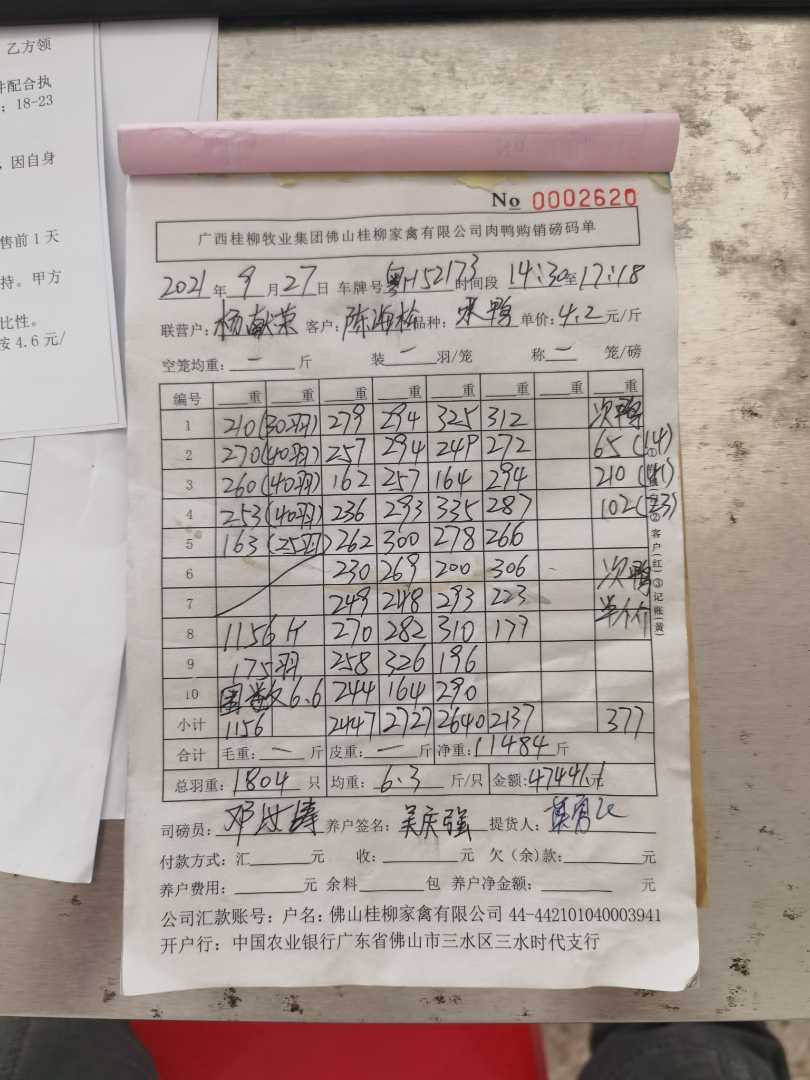 乙方领
件配合执
：18-23
，因自身
售前1天
持。甲方
比性。
按4.6元/
No 0002620
广西桂柳牧业集团佛山桂柳家禽有限公司肉鸭购销磅码单
2021年9月27日 车牌号 粤H52173 时间段 14:30至17:18
联营户：杨献荣 客户：陈海 品种： 鸭 单价：4.2元/斤
空笼均重：一斤 装一羽/笼 称一笼/磅
编号 重 重 重 重 重 重 重 重
1 210(30羽) 279 294 325 312 次鸭
2 270(40羽) 257 294 249 272 65(14)
3 260(40羽) 162 257 164 294 210(41)
4 253(40羽) 236 293 335 287 102(23)
5 163(25羽) 262 300 278 266
6 230 269 200 306 次鸭
7 249 248 293 223 单价
8 1156斤 270 282 310 177
9 175羽 258 326 196
10 6.6 244 164 290
小计 1156 2447 2727 2640 2137 377
合计 毛重：一斤 皮重：一斤 净重：11484斤
总羽重：1804只 均重：6.3斤/只 金额：47441.1元
司磅员： 邓 养户签名：吴庆强 提货人：
付款方式：汇 元 收： 元 欠（余）款： 元
养户费用： 元 余料 包 养户净金额： 元
公司汇款账号：户名：佛山桂柳家禽有限公司 44-442101040003941
开户行：中国农业银行广东省佛山市三水区三水时代支行
② 客户(红) ③ 记账(黄)